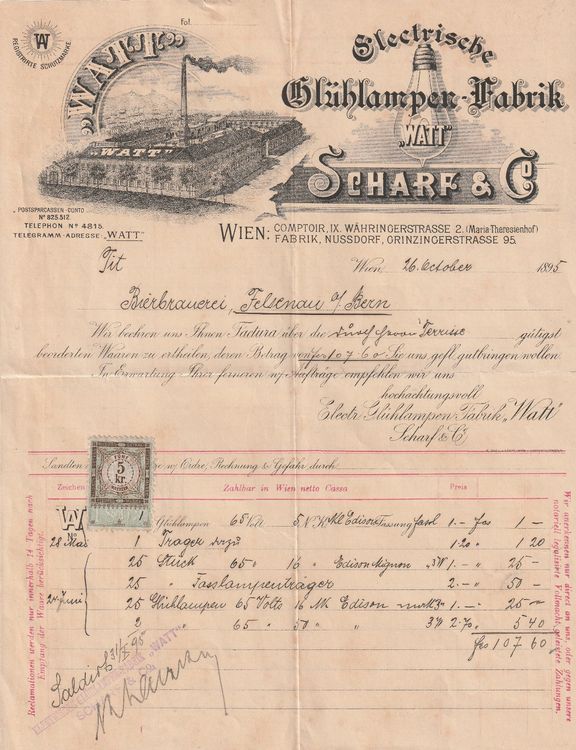 Fol.
WATT
REGISTRIRTE SCHUTZMARKE
„WATT”
"WATT"
Electrische
Glühlampen-Fabrik
„WATT”
SCHARF & Co
POSTSPARCASSEN-CONTO
No 825.512
TELEPHON No 4815.
TELEGRAMM-ADRESSE: „WATT”
WIEN: COMPTOIR, IX. WÄHRINGERSTRASSE 2. (Maria-Theresienhof)
FABRIK, NUSSDORF, GRINZINGERSTRASSE 95.
Tit
Wien, 26. October 1895
Bierbrauerei, Felsenau b/ Bern
Wir beehren uns Ihnen Factura über die durch Herrn gütigst
beorderten Waaren zu ertheilen, deren Betrag von frs 107 60 Sie uns gefl. gutbringen wollen.
In Erwartung Ihrer ferneren w/ Aufträge empfehlen wir uns
hochachtungsvoll
Electr. Glühlampen-Fabrik „Watt”
Scharf & Co
Sandten w/ Ordre, Rechnung & Gefahr durch
Zeichen Zahlbar in Wien netto Cassa Preis
5 kr.
WA
No Glühlampen 65 Volt 5 N.K. Edison Fassung 1.— frs 1 —
28 Mai 1 Träger 1.20 " 1 20
25 Stück 65 " 16 " Edison Mignon 1.— " 25 —
25 " Fasslampenträger 2.— " 50 —
24 Juni 25 Glühlampen 65 Volts 16 NK Edison 1.— " 25 —
2 " 65 " 50 " " 2.70 " 5 40
frs 107 60
Saldirt 31/X 95
„WATT”
SCHARF & Co.
Reclamationen werden nur innerhalb 14 Tagen nach
Empfang der Waare berücksichtigt.
Wir anerkennen nur direct an uns, oder gegen unsere
notariell legalisirte Vollmacht geleistete Zahlungen.